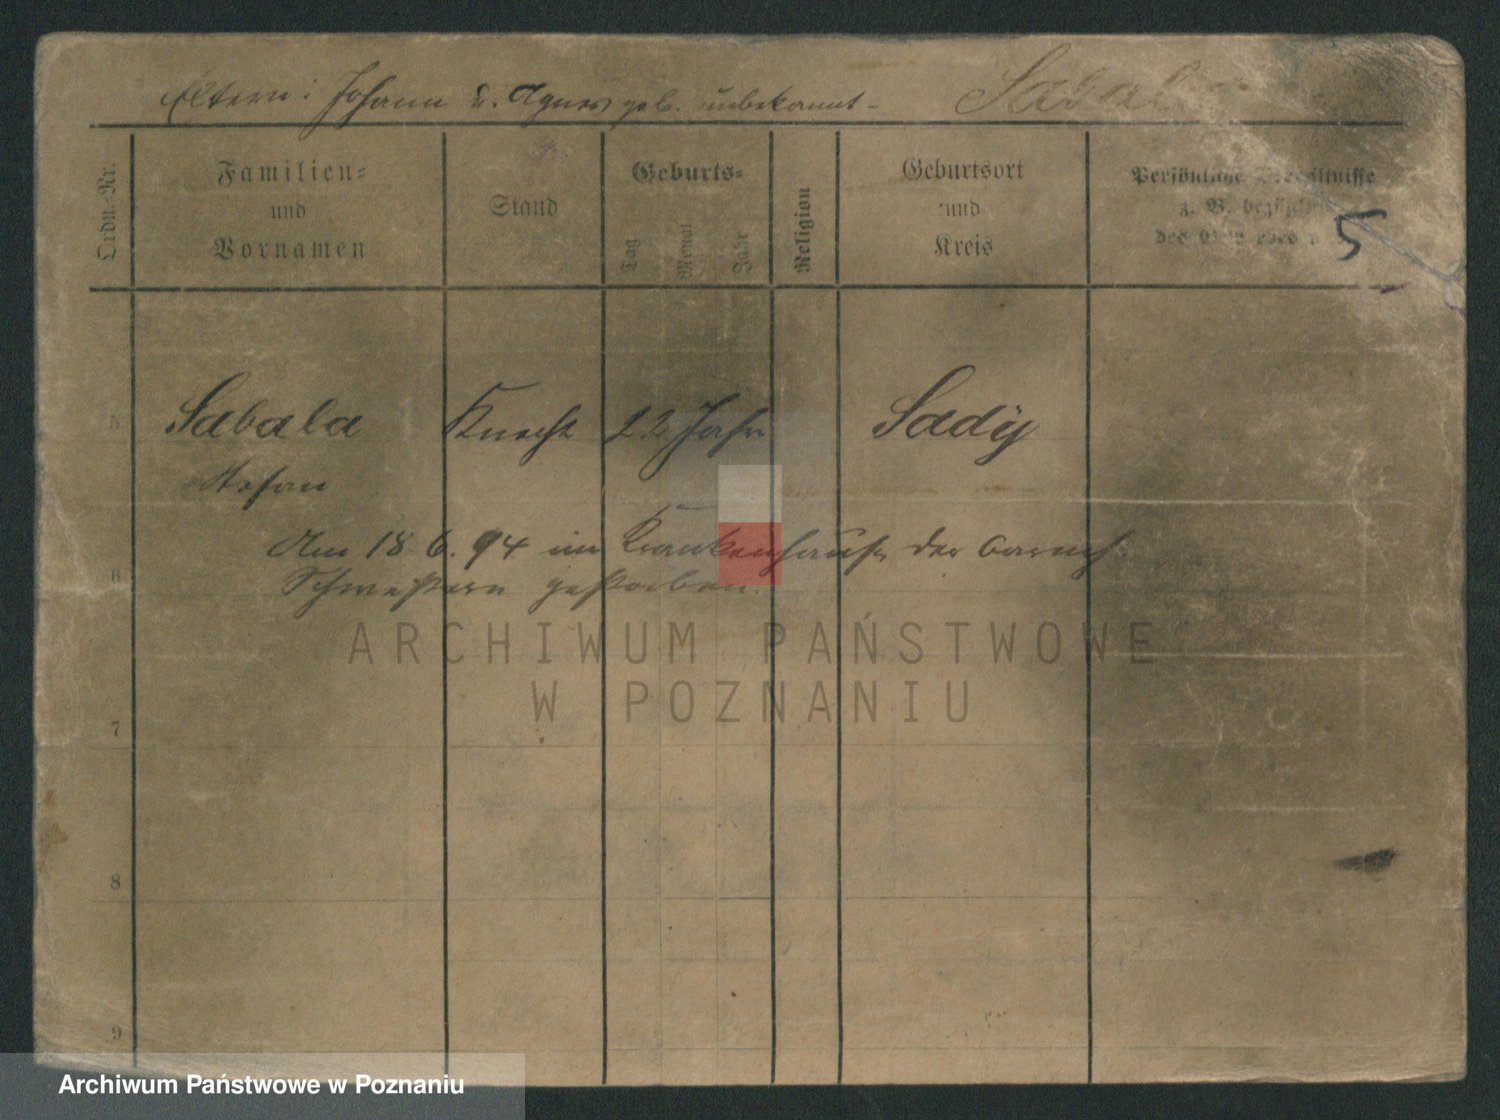 Eltern: Johann u. Agnes geb. unbekannt - Sabala
Ordn.-Nr.
Familien=
und
Vornamen
Stand
Geburts=
Tag
Monat
Jahr
Religion
Geburtsort
und
Kreis
Persönliche Verhältnisse
z. B. bezüglich
des
5
5
Sabala Knecht 22 Jahr Sady
Stefan
Am 18 6. 94 im Krankenhause der barmh.
6
Schwestern gestorben.
ARCHIWUM PAŃSTWOWE
W POZNANIU
7
8
9
Archiwum Państwowe w Poznaniu